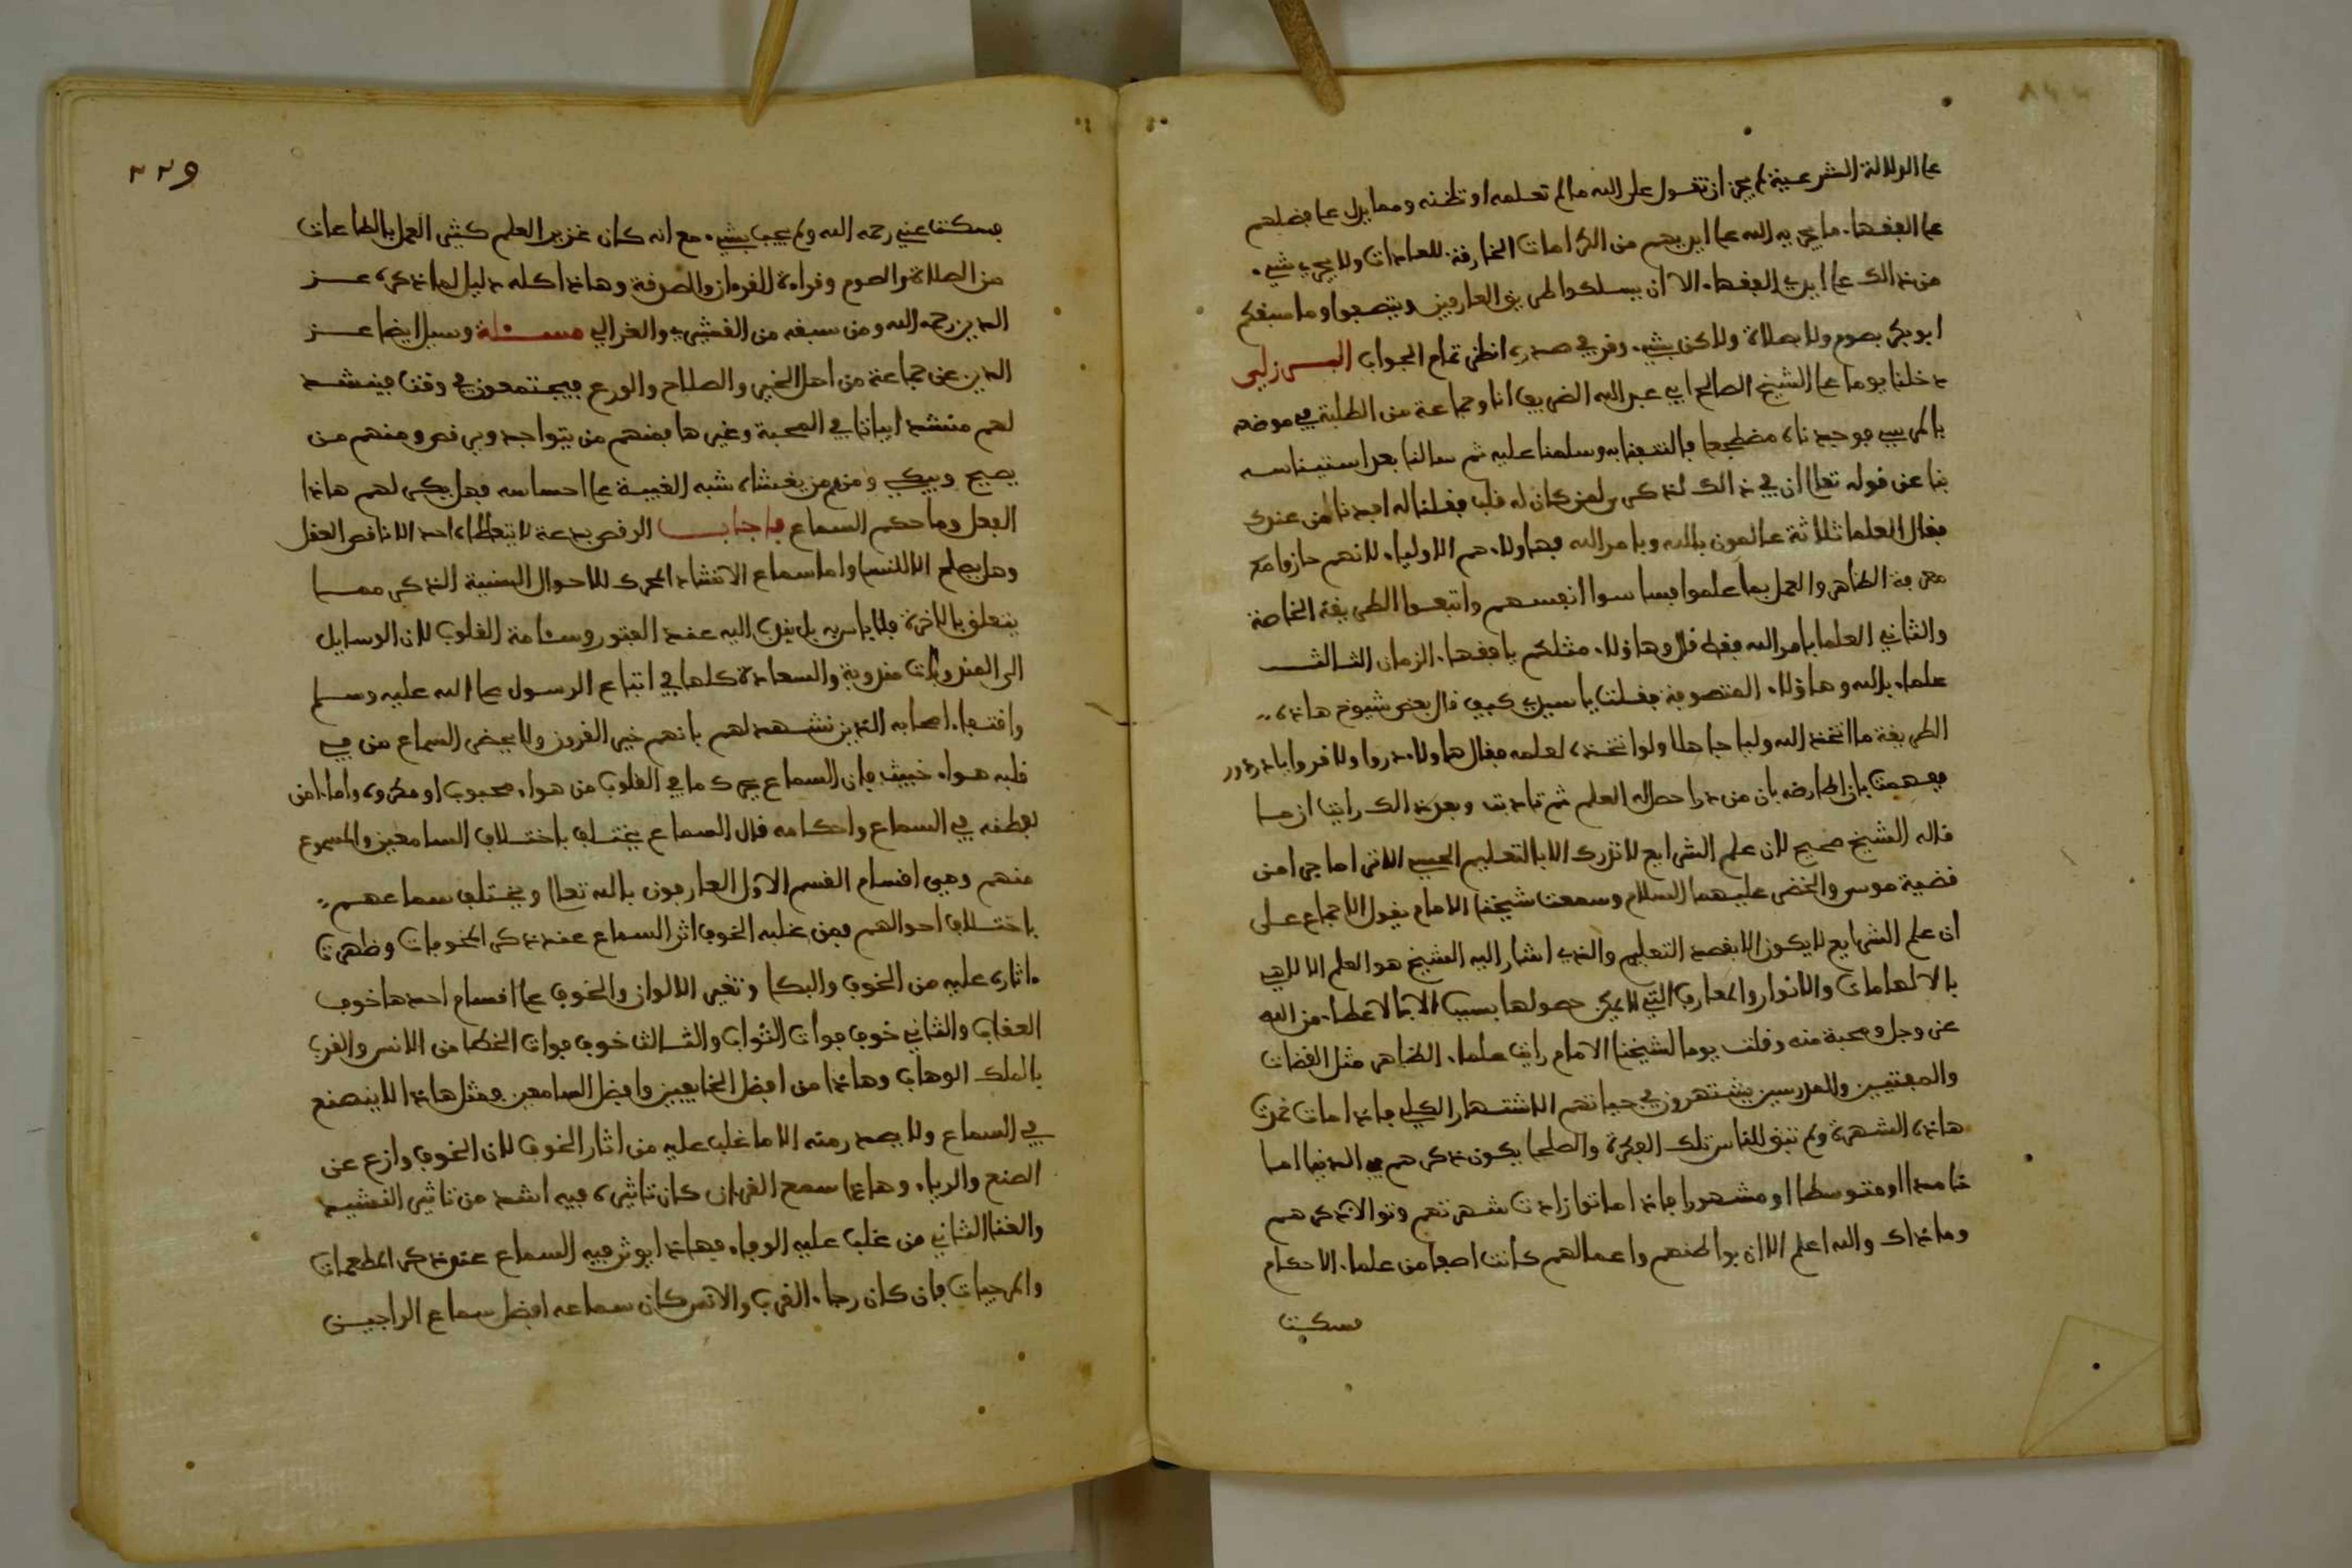 على الدلالة الشرعية لم يجز ان تقول على الله ما لم تعلمه او تظنه ومما يدل على فضلهم
على الفقها. ما يجريه الله على ايديهم من الكرامات الخارقة للعادات ولا يجري شيء.
من ذالك على ايدي الفقها. الا ان يسلكوا طريق العارفين ويتصفوا وما سبقكم
ابو بكر بصوم ولا بصلاة ولاكن بشيء. وقر في صدره انظر تمام الجواب البرزلي
دخلنا يوما على الشيخ الصالح ابي عبد الله الضريف انا وجماعة من الطلبة في موضعه
بالمر فوجدناه مضطجعا فالتفتنا به وسلمنا عليه ثم سالنا بعد استيناسه
بنا عن قوله تعالى ان في ذالك لذكرى لمن كان له قلب فقلنا له افدنا من عندك
فقال العلما ثلاثة عالمون بالله وبامر الله فهاولاء هم الاولياء لانهم حازوا مع
معرفة الظاهر والعمل بما علموا فساسوا انفسهم واتبعوا الطريقة الخاصة
والثاني العلما بامر الله فقط قال وهاؤلاء مثلكم يا فقها. الزمان الثالث
علماء بالله وهاؤلاء المتصوفة فقلت يا سيدي كيف قال بعض شيوخ هاذه
الطريقة ما اتخذ الله وليا جاهلا ولو اتخذه لعلمه فقال هاولاء دروا ولا قروا يا
ففهمت بان بان من درا حصل له العلم ثم تادبت وبعد ذالك رايت ان ما
قاله الشيخ صحيح لان علم الشرايع لا تدرك الا بالتعليم الحسي الاترى ما جرى من
قضية موسى والخضر عليهما السلام وسمعت شيخنا الامام يقول الاجماع على
ان علم الشرايع لا يكون الا بقصد التعليم والذي اشار اليه الشيخ هو العلم اللالاهي
بالالهامات والانوار والمعارف التي لا يمكن حصولها بسبب الا بالاعطاء من الله
عز وجل ومحبة منه وقلت يوما لشيخنا الامام رايت علماء الظاهر مثل القضات
والمفتيين والمدرسين يشتهرون في حياتهم الاشتهار الكلي فاذا مات غمرت
هاذه الشهرة ولم تبق للناس تلك الفكرة والصلحا يكون ذكرهم في الدنيا اما
خامدا او متوسطا او مشهورا فاذا ماتوا زادت شهرتهم وتوالا ذكرهم
وما ذاك والله اعلم الا ان بواطنهم واعمالهم كانت اصفا من علما. الاحكام
فسكت
٢٢٩
فسكت عني رحمه الله ولم يجب بشيء. مع انه كان غزير العلم كثير العمل بالطاعات
من الصلاة والصوم وقراءة القرءان والصدقة وهاذا كله دليل لما ذكره عز
الدين رحمه الله ومن سبقه من القشيري والغزالي مسئلة وسيل ايضا عز
الدين عن جماعة من اهل الخير والصلاح والورع فيجتمعون في وقت فينشد
لهم منشد ابياتا في المحبة وغيرها فمنهم من يتواجد ويرقص ومنهم من
يصيح ويبكي ومنهم من يغشاه شبه الغيبة على احساسه فهل يكره لهم هاذا
الفعل وما حكم السماع فاجاب الرقص بدعة لا يتعاطاه احد الا ناقص العقل
وهل يصلح الا للنسا واما سماع الانشاد المحرك للاحوال السنية الذكر مما
يتعلق بالاخرة فلا باس به بل يندب اليه عند الفتور وسئامة القلوب لان الوسايل
الى المندوبات مندوبة والسعادة كلها في اتباع الرسول صلى الله عليه وسلم
واقتفا. اصحابه الذين نشهد لهم بانهم خير القرون ولا يحضر السماع من في
قلبه هواء خبيث فان السماع يحرك ما في القلوب من هواء محبوب او مكروه واما من
بعظه في السماع واحكامه قال السماع يختلف باختلاف السامعين والمسموع
منهم وهي اقسام القسم الاول العارفون بالله تعالى ويختلف سماعهم
باختلاف احوالهم فمن غلبه الخوف اثر السماع عند ذكر المخوفات وظهرت
ءاثاره عليه من الخوف والبكا وتغير الالوان والخوف على اقسام احدها خوف
العقاب والثاني خوف فوات الثواب والثالث خوف فوات الحظ من الانس والقرب
بالملك الوهاب وهاذا من افضل الخايفين وافضل السامعين فمثل هاذا لا يتصنع
في السماع ولا يصدر منه الا ما غلب عليه من اثار الخوف لان الخوف وازع عن
الصنع والرياء وهاذا سمع القرءان كان تاثيره فيه اشد من تاثير النشيد
والغنا الثاني من غلب عليه الرجاء فهاذا يوثر فيه السماع عند ذكر المطمعات
والمرجيات فان كان رجاء القرب والانس كان سماعه افضل سماع الراجين